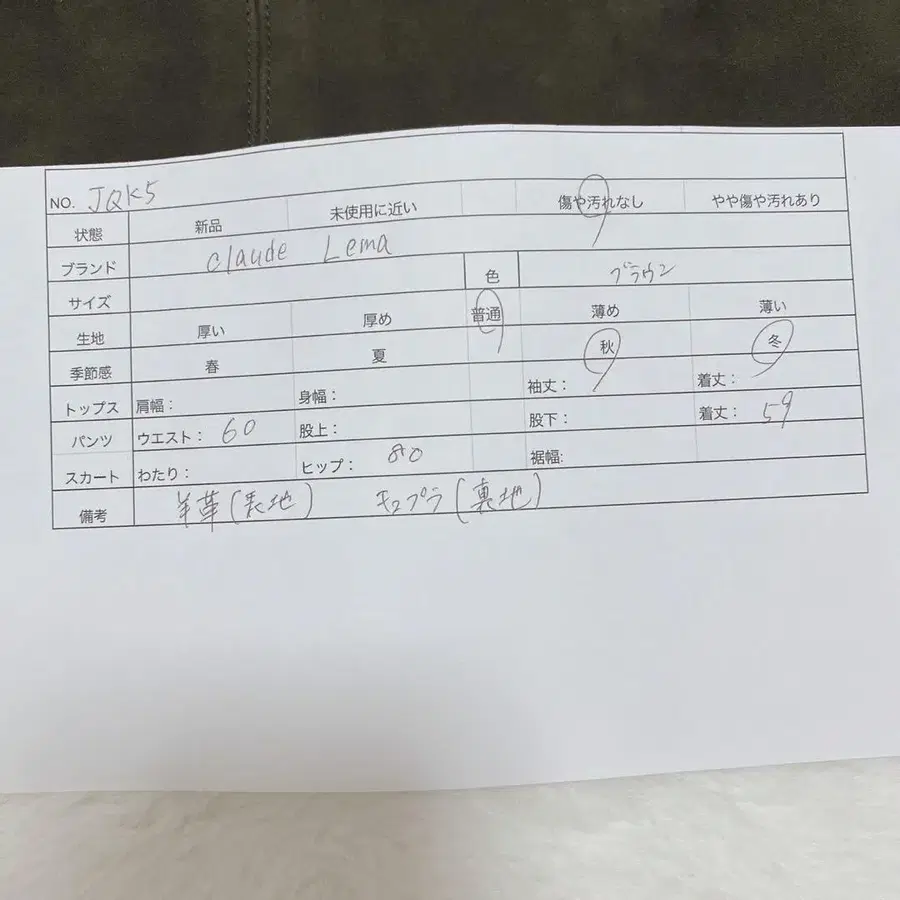 NO. JQK5
状態 新品 未使用に近い 傷や汚れなし やや傷や汚れあり
ブランド claude Lema
サイズ 色 ブラウン
生地 厚い 厚め 普通 薄め 薄い
季節感 春 夏 秋 冬
トップス 肩幅: 身幅: 袖丈: 着丈:
パンツ ウエスト: 60 股上: 股下: 着丈: 59
スカート わたり: ヒップ: 80 裾幅:
備考 羊革(表地) キュプラ(裏地)